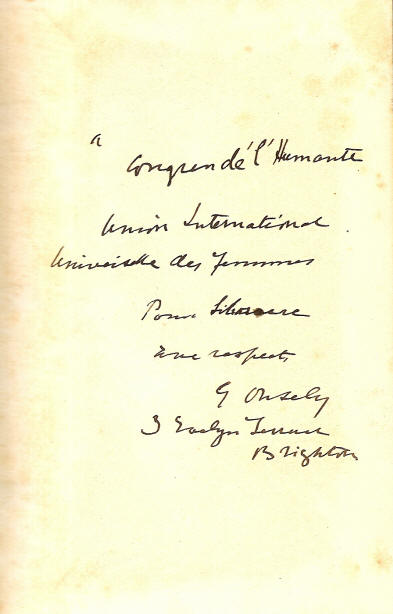 a
Congren de l'Humante
Union International
Universelle des femmes
Pour
Ave respects
G Ouseley
3 Evelyn Terrace
Brighton